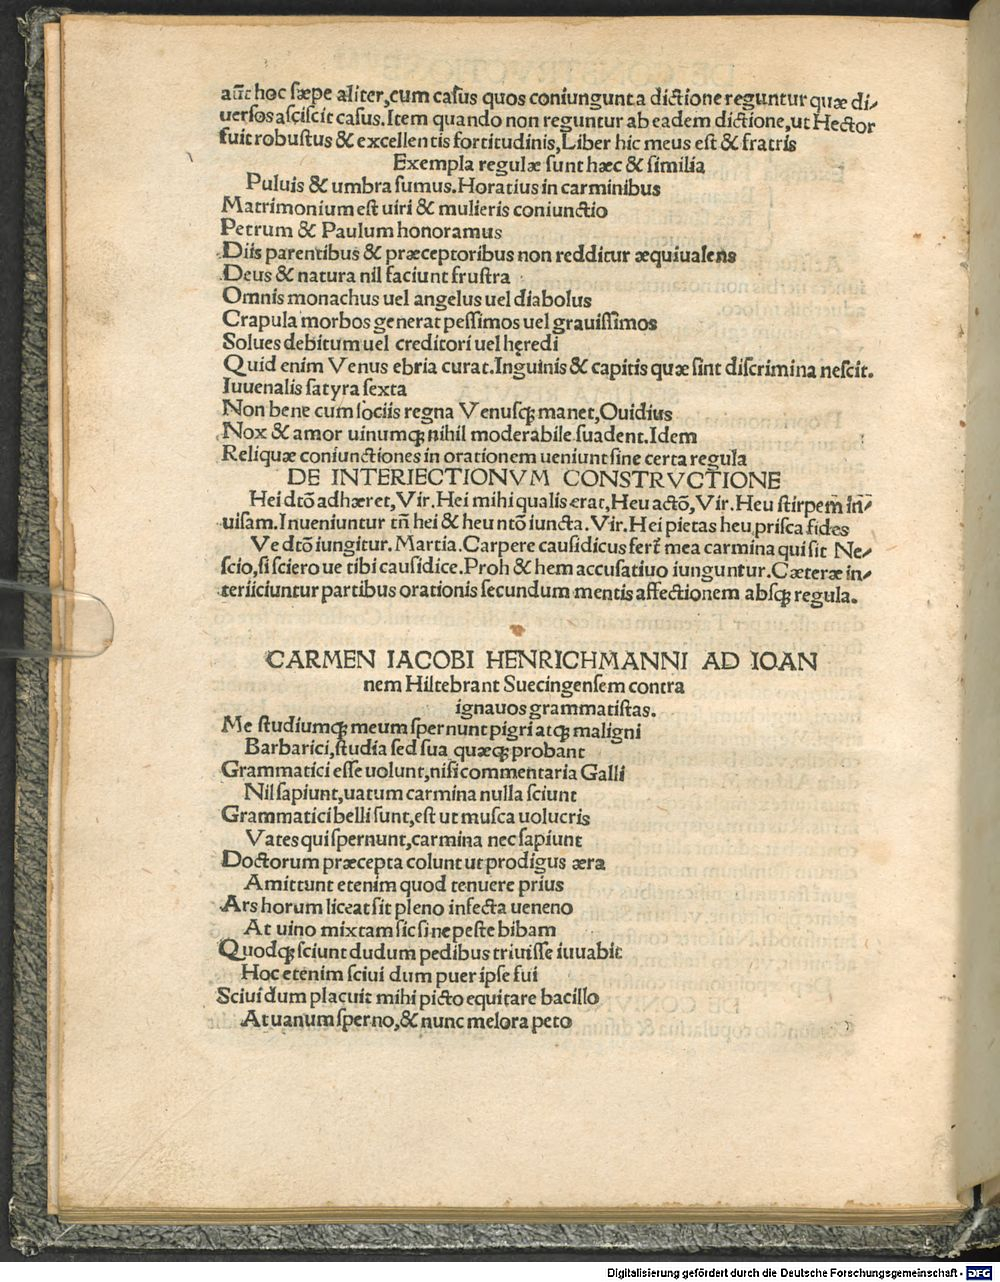 aūt hoc sæpe aliter,cum casus quos coniungunt a dictione reguntur quæ di-
uersos asciscit casus.Item quando non reguntur ab eadem dictione,ut Hector
fuit robustus & excellentis fortitudinis,Liber hic meus est & fratris
Exempla regulæ sunt hæc & similia
Puluis & umbra sumus.Horatius in carminibus
Matrimonium est uiri & mulieris coniunctio
Petrum & Paulum honoramus
Diis parentibus & præceptoribus non redditur æquiualens
Deus & natura nil faciunt frustra
Omnis monachus uel angelus uel diabolus
Crapula morbos generat pessimos uel grauissimos
Solues debitum uel creditori uel hęredi
Quid enim Venus ebria curat.Inguinis & capitis quæ sint discrimina nescit.
Iuuenalis satyra sexta
Non bene cum sociis regna Venusqȝ manet,Ouidius
Nox & amor uinumqȝ nihil moderabile suadent.Idem
Reliquæ coniunctiones in orationem ueniunt sine certa regula
DE INTERIECTIONVM CONSTRVCTIONE
Hei dtō adhæret,Vir.Hei mihi qualis erat,Heu actō,Vir.Heu stirpem in-
uisam.Inueniuntur tñ hei & heu ntō iuncta.Vir.Hei pietas heu prisca fides
Ve dtō iungitur.Martia.Carpere causidicus fert̄ mea carmina qui sit Ne-
scio,si sciero ue tibi causidice.Proh & hem accusatiuo iunguntur.Cæteræ in-
teriiciuntur partibus orationis secundum mentis affectionem absqȝ regula.
CARMEN IACOBI HENRICHMANNI AD IOAN
nem Hiltebrant Suecingensem contra
ignauos grammatistas.
Me studiumqȝ meum spernunt pigri atqȝ maligni
Barbarici,studia sed sua quæqȝ probant
Grammatici esse uolunt,nisi commentaria Galli
Nil sapiunt,uatum carmina nulla sciunt
Grammatici belli sunt,est ut musca uolucris
Vates qui spernunt,carmina nec sapiunt
Doctorum præcepta colunt ut prodigus æra
Amittunt etenim quod tenuere prius
Ars horum liceat sit pleno infecta ueneno
At uino mixtam sic sine peste bibam
Quodqȝ sciunt dudum pedibus triuisse iuuabit
Hoc etenim sciui dum puer ipse fui
Sciui dum placuit mihi picto equitare bacillo
At uanum sperno,& nunc melora peto
Digitalisierung gefördert durch die Deutsche Forschungsgemeinschaft - DFG